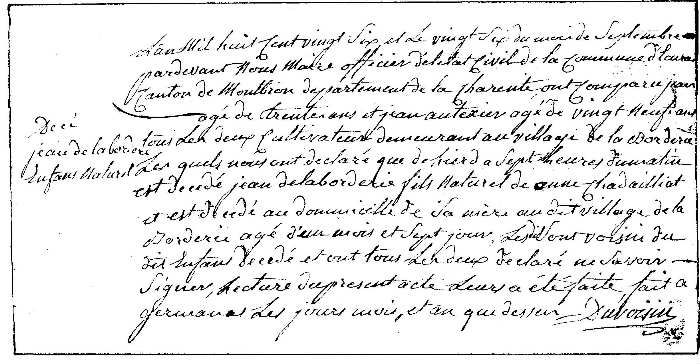 L'an Mil huit Cent vingt Six et Le vingt Six du mois de Septembre
pardevant Nous Maire officier deletat Civil de la Commune
Canton de Montbron departement de la Charente, ont Comparu jean
agé de trente ans et jean autexier agé de vingt Neuf ans
tous Les deux Cultivateur demeurant au village de la Borderie
Les quels nous ont declaré que de hier a Sept heures du matin
est decedé jean delaborderie fils Naturel de anne Chadailliat
et est decedé au domicille de Sa mere au dit village de la
Borderie agé d'un mois et Sept jour, Les Voisin du
dit Enfans decedé et ont tous Les deux declaré ne Savoir
Signer, Lecture du present acte Leurs a été faite fait a
germanas Les jours mois, et an que dessus Duvoisin
Decé
jean de laborderi
Enfans Naturel